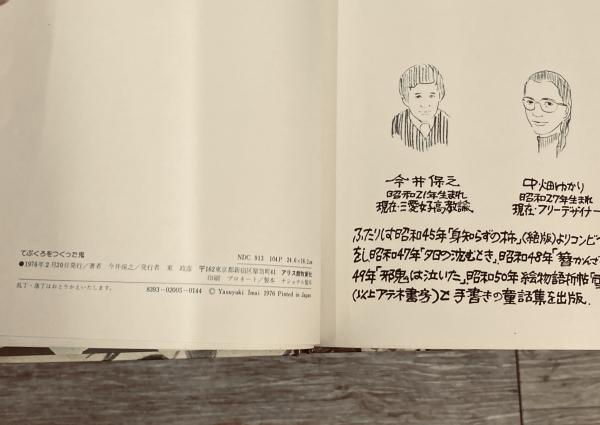 てぶくろをつくった鬼
NDC 913 104P 24.6×18.2㎝
●1976年2月20日発行/著者 今井保之/発行者 東 政彦 〒162東京都新宿区原町41 アリス館牧新社
印刷 プロネート/製本 ナショナル製本
乱丁・落丁はおとりかえいたします。 8393-02005-0144 © Yasuyuki Imai 1976 Printed in Japan
今井保之
昭和21年生まれ
現在・三愛女子高教諭
中畑ゆかり
昭和27年生まれ
現在・フリーデザイナー
ふたりは昭和45年「身知らずの柿」(絶版)よりコンビ
をし昭和47年「夕日の沈むとき」昭和48年「簪かんざ
49年「邪鬼は泣いた」昭和50年絵物語折帖
(以上アテネ書房)と手書きの童話集を出版.